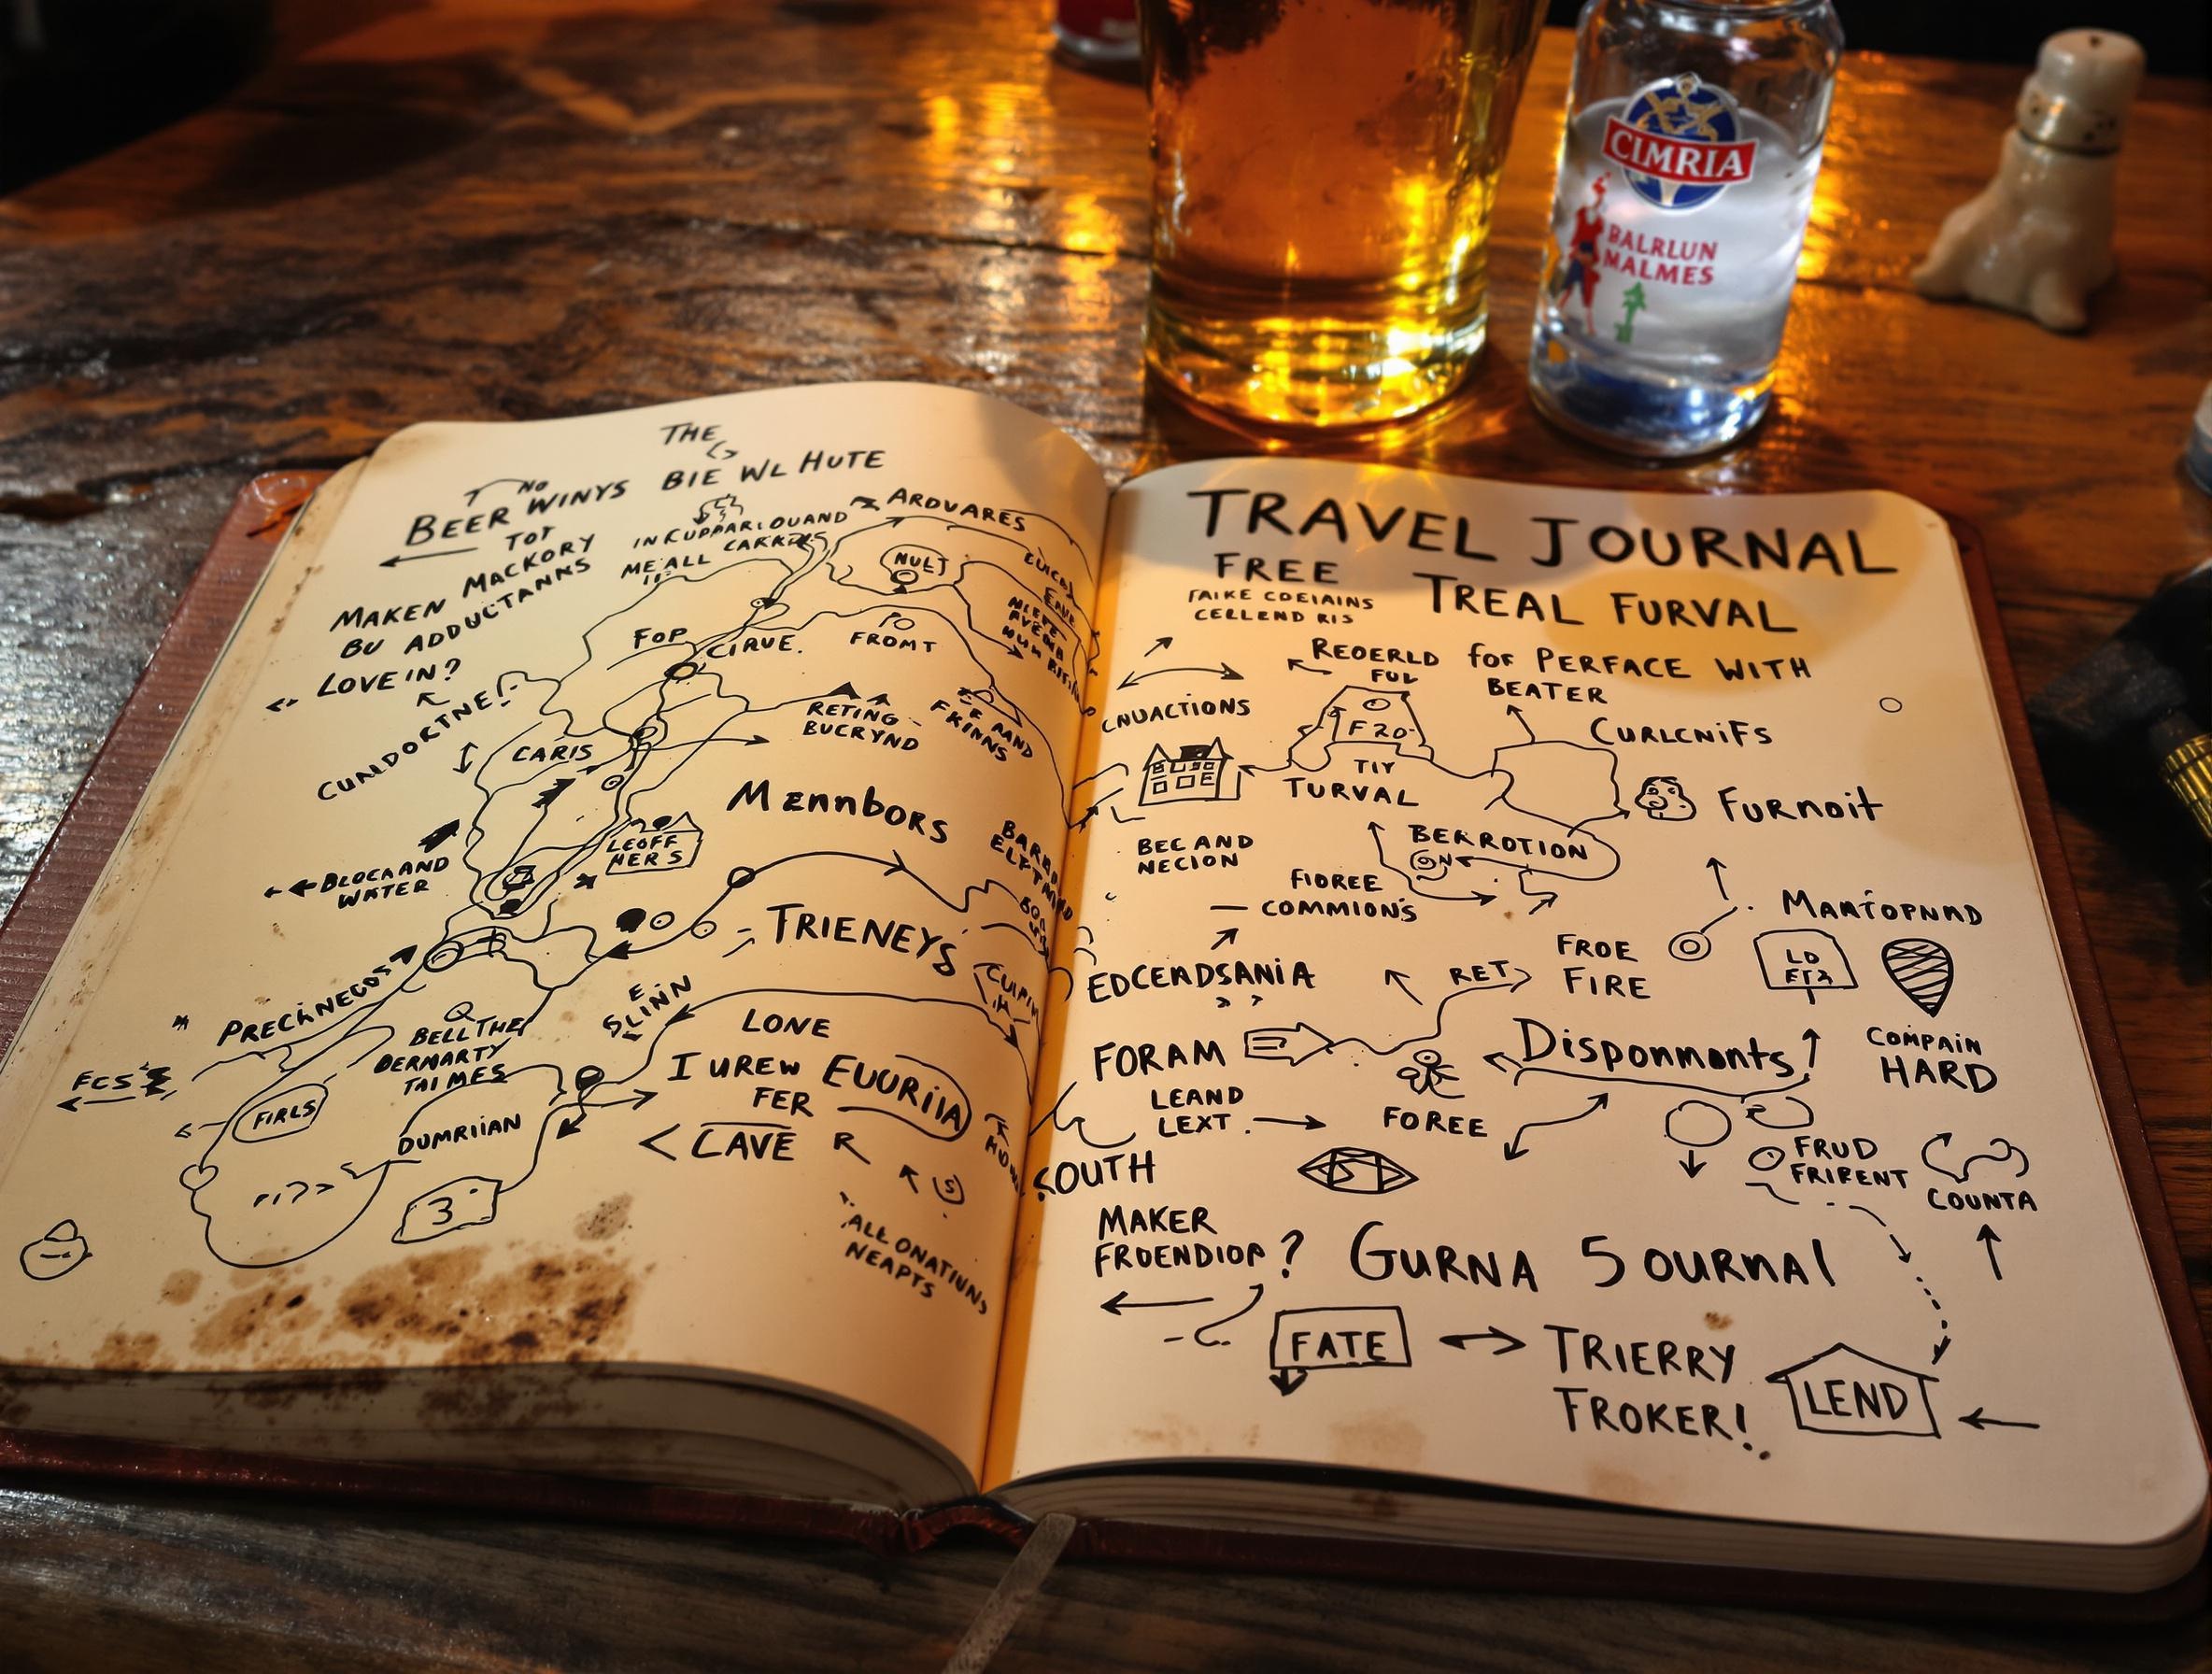 CIMRIA
BALRLUN
MALMES
THE
NO
BEER WINYS BIE WL HUTE
TOT
MAKEN MACKORY
BU ADDUCTANNS
LOVEIN?
ARDVARES
ME'ALL
NULT
FOP
CIRVE.
FROMT
CARIS
RETING
BUCRYND
Mennbors
LEOFF
HER S
BLOCAAND
WATER
TRIENEYS
PRECHNEGOS
E
SLINN
BELL THE
DERMARTY
TAIMES
LONE
I UREW EUURIIA
FER
FCS
FIRLS
DUMRIIAN
CAVE R
3
S
ALLONATIUNS
NEAPTS
TRAVEL JOURNAL
FREE TREAL FURVAL
CELLEND RIS
REOERLD for PERFACE WITH
FUL BEATER
CNUACTIONS
F20
CURLCNIFS
TIY
TURVAL
FURNOIT
BEC AND
NECION
BERROTION
FIOREE
COMMION'S
MARTOPNND
EDCERDSANIA
RET
FROE
FIRE
LD
FORAM
Disponmonts!
COMPAIN
HARD
LEAND
LEXT.
FOREE
SOUTH
FRUD
FRIFENT
COUNTA
MAKER
FRUENDIOP?
GURNA 5OURNAl
FATE
TRIERRY
FROKER!
LEND